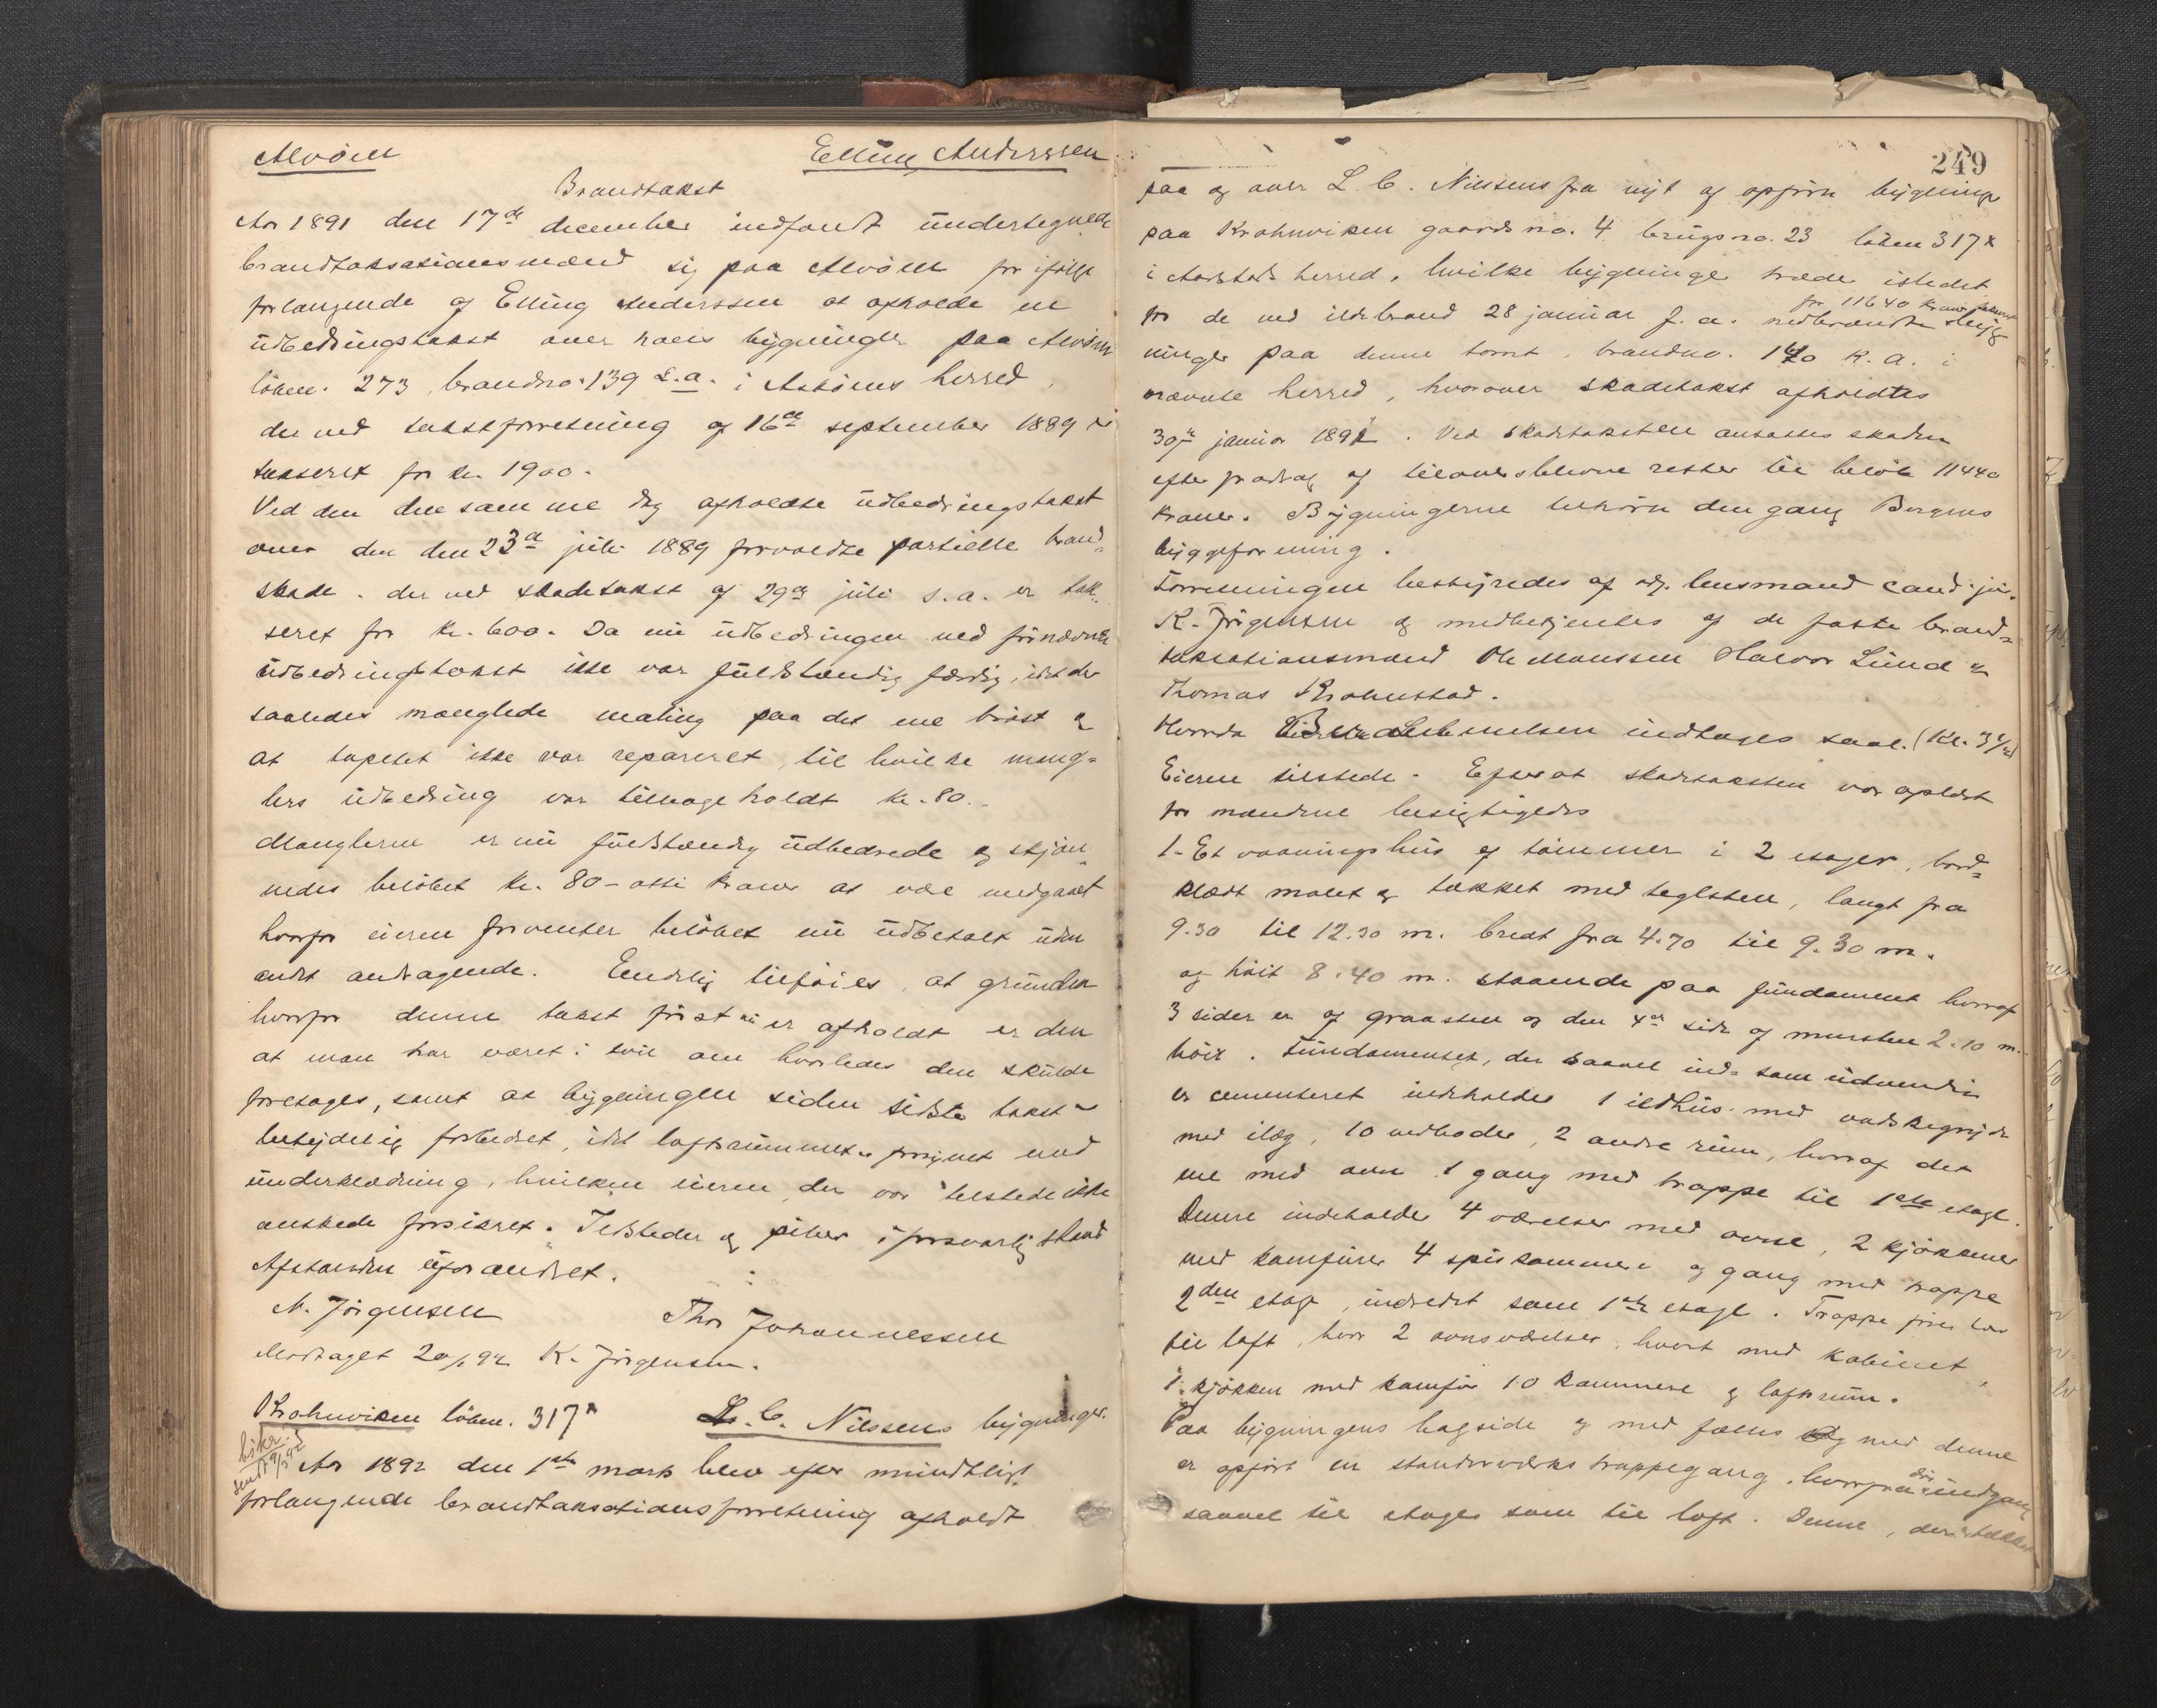 Alvöen
Elling Anderssen
Brandtakst
Aar 1891 den 17de december indfandt undertegnede
brandtaksationsmænd sig paa Alvöen for ifölge
forlangende af Elling Anderssen at afholde en
udbedringstakst over hans bygninger paa Alvöen
löben. 273, brandno. 139 L.a. i Asköens herred,
der ved takstforretning af 16de september 1889 er
takseret for kr. 1900.
Ved den den samme dag afholdte udbedringstakst
over den den 23de juli 1889 forvoldte partielle brand-
skade, der ved skadetakst af 29de juli s.a. er tak-
seret for kr. 600. Da nu udbedringen ved fornævnte
udbedringstakst ikke var fuldstændig færdig, idet der
saaledes manglede maling paa det ene bröst og
at tapetet ikke var repareret, til hvilke mang-
lers udbedring var tilbageholdt kr. 80.-
Manglerne er nu fuldstændig udbedrede og skjön-
nedes belöbet kr. 80 - otti kroner at være medgaaet
hvorfor eieren forventer belöbet nu udbetalt uden
andet andragende. Endelig tilföies, at grunden
hvorfor denne takst först nu er afholdt er den
at man har været i tvil om hvorledes den skulde
foretages, samt at bygningen siden sidste takst er
betydelig forbedret, idet loftsrummet er forsynet med
underklædning, hvilken eieren, der var tilstede ikke
önskede forsikret. Ildsteder og piber i forsvarlig stand
Afstanden uforandret.
N. Jörgensen
Thor Johannessen
Modtaget 20/1 92 K. Jörgensen.
Krohnviken löben. 317x
L. C. Nilssens bygninger.
sendt
Aar 1892 den 1ste marts blev efter mundtligt
forlangende brandtaksationsforretning afholdt
249
paa og over L. C. Nilssens fra nyt af opförte bygninger
paa Krohnviken gaards no. 4 brugs no. 23 löben 317x
i Aarstads herred, hvilke bygninger træde istedet
for 11640 kroner takserede
for de ved ildebrand 28 januar f. a. nedbrændte byg-
ninger paa denne tomt, brandno. 140 R. a. i
nævnte herred, hvorover skadetakst afholdtes
30te januar 1891. Ved skadetaksten ansattes skaden
efter fradrag af tiloversblevne rester til belöb 11440
kroner. Bygningerne tilhörte dengang Bergens
byggeforening.
Forretningen bestyredes af adj. lensmand cand. jur.
K. Jörgensen og medbetjentes af de faste brand-
taksationsmænd Ole Monssen Halvor Lund og
Thomas Krohnstad.
Hvorda indtages saal. (Kl. 3½)
Eieren tilstede. Efterat skadetaksten var oplæst
for mændene besigtigedes
1. Et vaaningshus af tömmer i 2 etager, bord-
klædt malet og tækket med teglsten, langt fra
9.30 til 12.30 m. bredt fra 4.70 til 9.30 m.
og höit 8.40 m. staaende paa fundament hvoraf
3 sider er af graasten og den 4de side af mursten 2.10 m.
höit. Fundamentet, der saavel ind- som udvendig
er cementeret indeholder 1 ildhus med vadskegryde
med ilæg, 10 vedboder, 2 andre rum, hvoraf det
ene med ovn 1 gang med trappe til 1ste etage.
Denne indeholder 4 værelser med ovne, 2 kjökkener
med komfurer 4 spiskammere og gang med trappe
2den etage, indredet som 1ste etage. Trappe förer her
til loft, hvor 2 ovnsværelser, hvert med kabinet,
1 kjökken med komfur 10 kammere og loftsrum.
Paa bygningens bagside og med fælles væg med denne
er opfört en standerværks trappegang, hvorfra der er indgang
saavel til etager som til loft. Denne, der er tækket